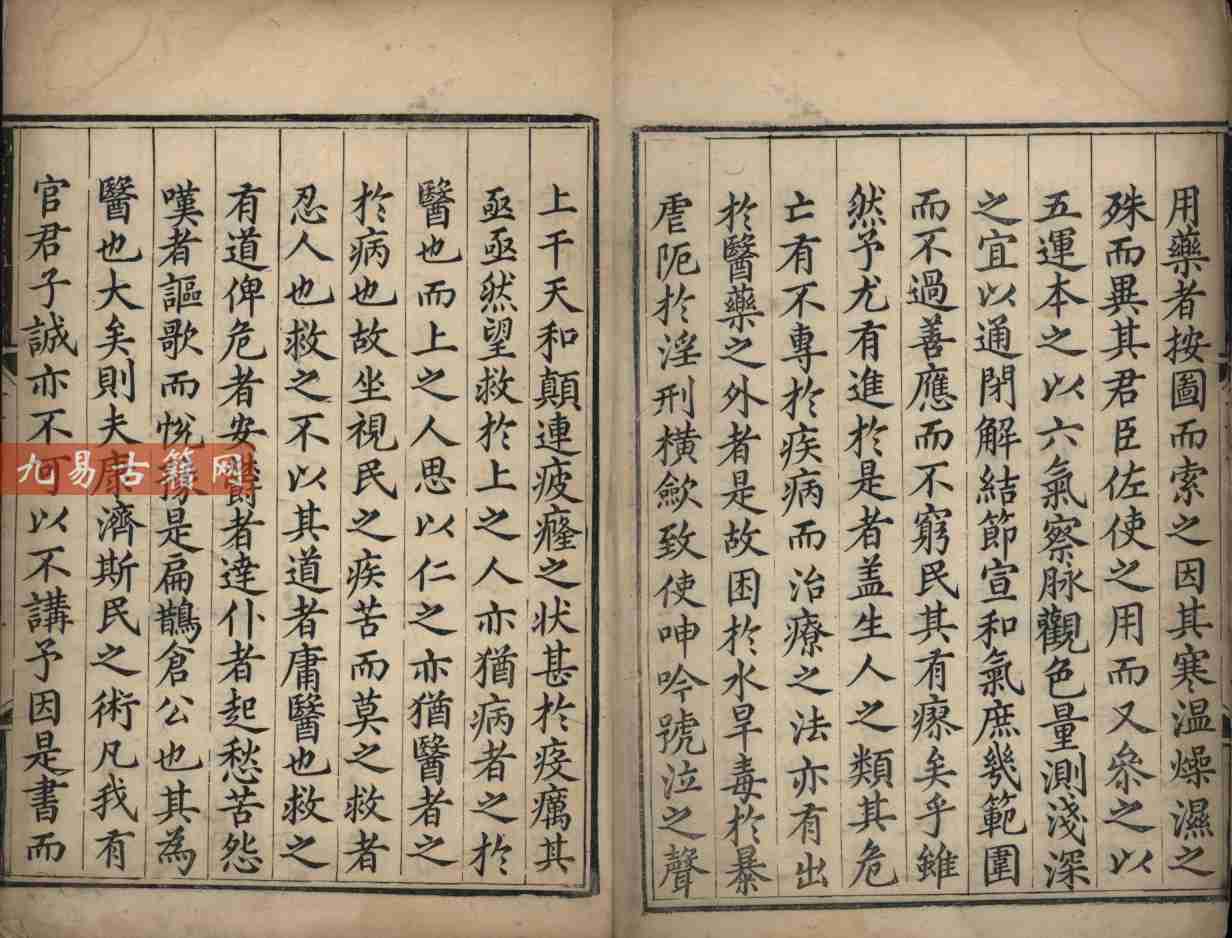 用藥者按圖而索之因其寒温燥濕之
殊而異其君臣佐使之用而又叅之以
五運本之以六氣察脉觀色量測淺深
之宜以通閉解結節宣和氣庶幾範圍
而不過善應而不窮民其有瘳矣乎雖
然予尤有進於是者盖生人之類其危
亡有不專於疾病而治療之法亦有出
於醫藥之外者是故困於水旱毒於暴
虐阨於淫刑横歛致使呻吟號泣之聲
上干天和顛連疲癃之状甚於疫癘其
亟亟然望救於上之人亦猶病者之於
醫也而上之人思以仁之亦猶醫者之
於病也故坐視民之疾苦而莫之救者
忍人也救之不以其道者庸醫也救之
有道俾危者安欝者達仆者起愁苦怨
嘆者謳歌而悅豫是扁鵲倉公也其為
醫也大矣則夫康濟斯民之術凡我有
官君子誠亦不可以不講予因是書而
九易古籍网